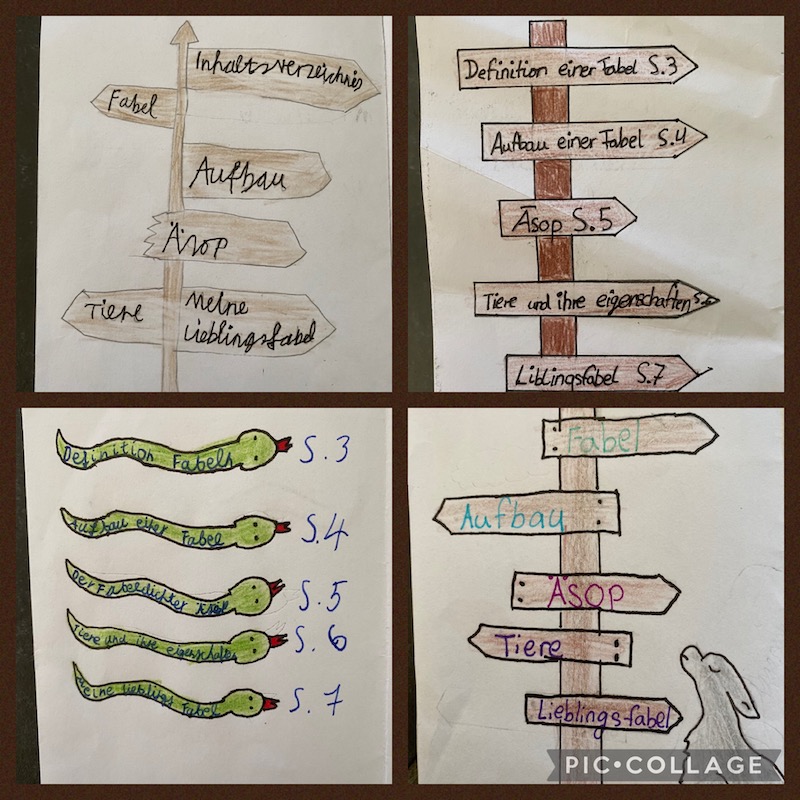 Inhaltsverzeichnis
Fabel
Aufbau
Äsop
Tiere
Meine
Lieblingsfabel
Definition einer Fabel S.3
Aufbau einer Fabel S.4
Äsop S.5
Tiere und ihre eigenschaften S.6
Liblingsfabel S.7
Definition Fabeln S.3
Aufbau einer Fabel S.4
Der Fabeldichter Äsop S.5
Tiere und ihre eigenschaften S.6
Meine Lieblings Fabel S.7
Fabel
Aufbau
ÄSOP
Tiere
Lieblingsfabel
PIC•COLLAGE